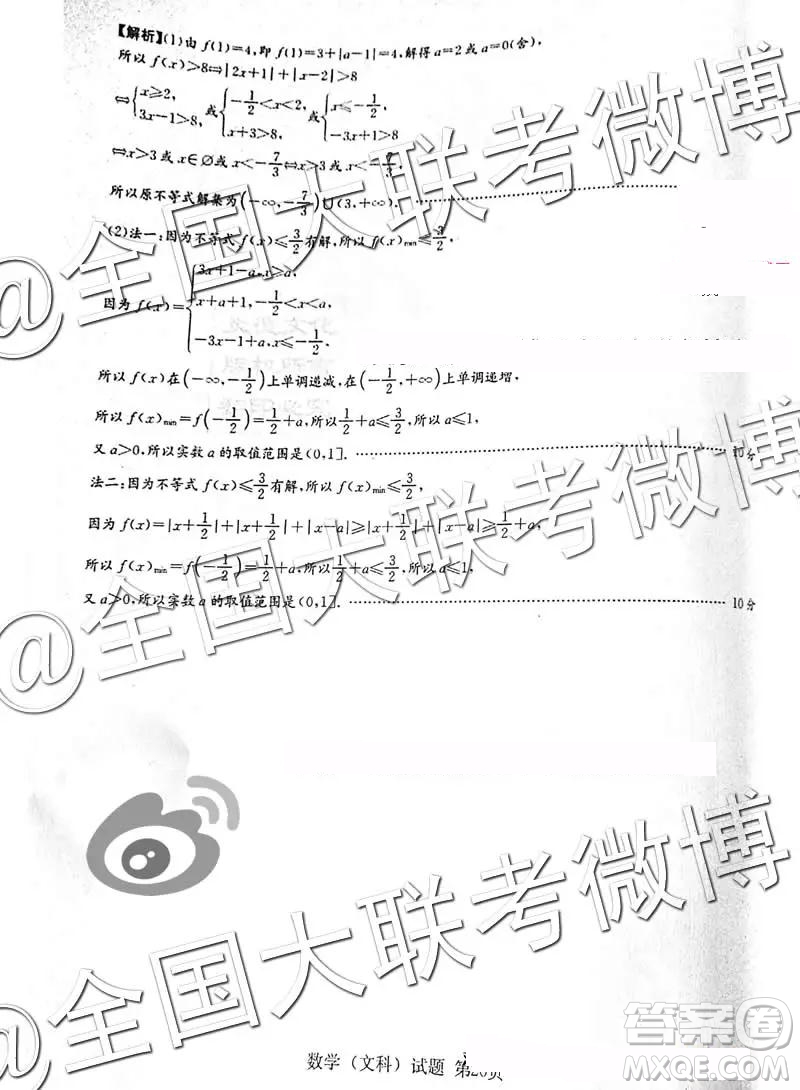 【解析】(1)由 f(1)=4,即 f(1)=3+|a-1|=4,解得 a=2 或 a=0(舍),
所以 f(x)>8⇔|2x+1|+|x-2|>8
⇔{x≥2, 3x-1>8, 或{-1/2<x<2, x+3>8, 或{x≤-1/2, -3x+1>8
⇔x>3 或 x∈∅ 或 x<-7/3⇔x>3 或 x<-7/3,
所以原不等式解集为(-∞,-7/3)∪(3,+∞).
(2)法一:因为不等式 f(x)≤3/2有解,所以 f(x)min≤3/2,
因为 f(x)={3x+1-a,x≥a, x+a+1,-1/2<x<a, -3x-1+a,x≤-1/2.
所以 f(x)在(-∞,-1/2)上单调递减,在(-1/2,+∞)上单调递增,
所以 f(x)min=f(-1/2)=1/2+a,所以1/2+a≤3/2,所以 a≤1,
又 a>0,所以实数 a 的取值范围是(0,1]. 10分
法二:因为不等式 f(x)≤3/2有解,所以 f(x)min≤3/2,
因为 f(x)=|x+1/2|+|x+1/2|+|x-a|≥|x+1/2|+|x-a|≥1/2+a,
所以 f(x)min=f(-1/2)=1/2+a,所以1/2+a≤3/2,所以 a≤1,
又 a>0,所以实数 a 的取值范围是(0,1]. 10分
@全国大联考微博
@全国大联考微博
@全国大联考微博
答案卷
MXQE.COM
数学（文科）试题 第20页